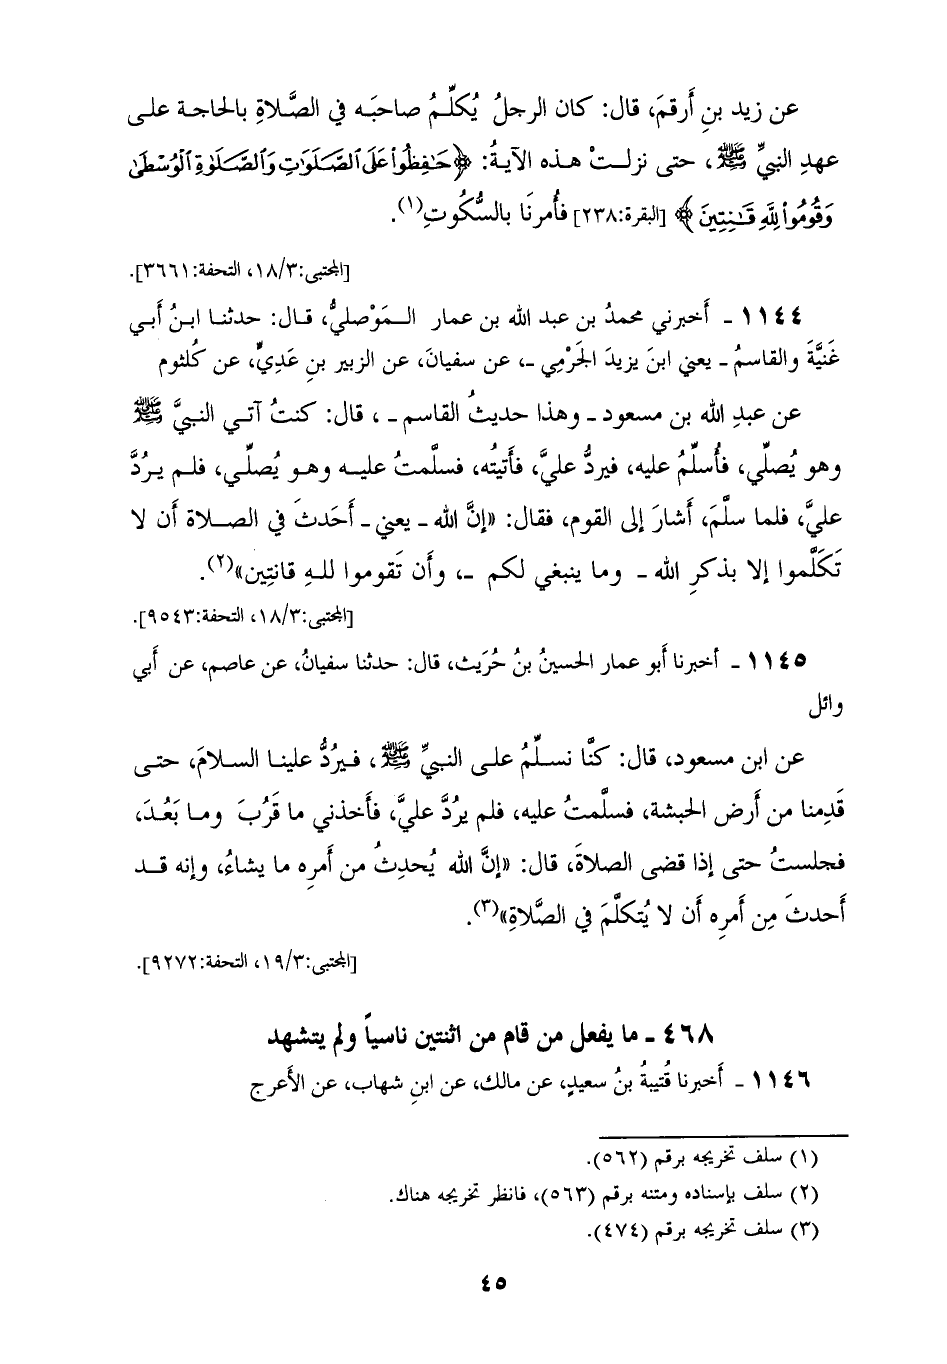 عن زيد بنِ أَرقمَ، قال: كان الرجلُ يُكلِّمُ صاحبَه في الصَّلاةِ بالحاجة على
عهدِ النبيِّ ﷺ، حتى نزلتْ هذه الآيةُ: ﴿حَٰفِظُوا۟ عَلَى ٱلصَّلَوَٰتِ وَٱلصَّلَوٰةِ ٱلْوُسْطَىٰ
وَقُومُوا۟ لِلَّهِ قَٰنِتِينَ﴾ [البقرة:٢٣٨] فأُمرنَا بالسُّكُوتِ(١).
[المجتبى:١٨/٣، التحفة:٣٦٦١].
١١٤٤ ـ أَخبرني محمدُ بن عبد الله بن عمار المَوْصليُّ، قال: حدثنا ابنُ أَبي
غَنيَّةَ والقاسمُ ـ يعني ابنَ يزيدَ الجَرْمِي ـ، عن سفيانَ، عن الزبير بنِ عَديٍّ، عن كُلثوم
عن عبدِ الله بن مسعود ـ وهذا حديثُ القاسم ـ ، قال: كنتُ آتي النبيَّ ﷺ
وهو يُصلِّي، فأُسلِّمُ عليه، فيردُّ عليَّ، فأَتيتُه، فسلَّمتُ عليه وهو يُصلِّي، فلم يرُدَّ
عليَّ، فلما سلَّمَ، أَشارَ إلى القوم، فقال: «إنَّ الله ـ يعني ـ أَحَدثَ في الصلاة أَن لا
تَكَلَّموا إلا بذكرِ الله ـ وما ينبغي لكم ـ، وأَن تَقوموا للهِ قانتِين»(٢).
[المجتبى:١٨/٣، التحفة:٩٥٤٣].
١١٤٥ ـ أخبرنا أَبو عمار الحسينُ بنُ حُرَيث، قال: حدثنا سفيانُ، عن عاصم، عن أَبي
وائل
عن ابن مسعود، قال: كنَّا نسلِّمُ على النبيِّ ﷺ، فيرُدُّ علينا السلامَ، حتى
قَدِمنا من أَرض الحبشة، فسلَّمتُ عليه، فلم يرُدَّ عليَّ، فأَخذني ما قَرُبَ وما بَعُدَ،
فجلستُ حتى إذا قضى الصلاةَ، قال: «إنَّ الله يُحدِثُ من أَمرِه ما يشاءُ، وإنه قد
أَحدثَ مِن أَمرِه أَن لا يُتكلَّمَ في الصَّلاةِ»(٣).
[المجتبى:١٩/٣، التحفة:٩٢٧٢].
٤٦٨ ـ ما يفعل من قام من اثنتين ناسياً ولم يتشهد
١١٤٦ ـ أَخبرنا قُتيبةُ بنُ سعيدٍ، عن مالك، عن ابنِ شهاب، عن الأَعرج
(١) سلف تخريجه برقم (٥٦٢).
(٢) سلف بإسناده ومتنه برقم (٥٦٣)، فانظر تخريجه هناك.
(٣) سلف تخريجه برقم (٤٧٤).
٤٥